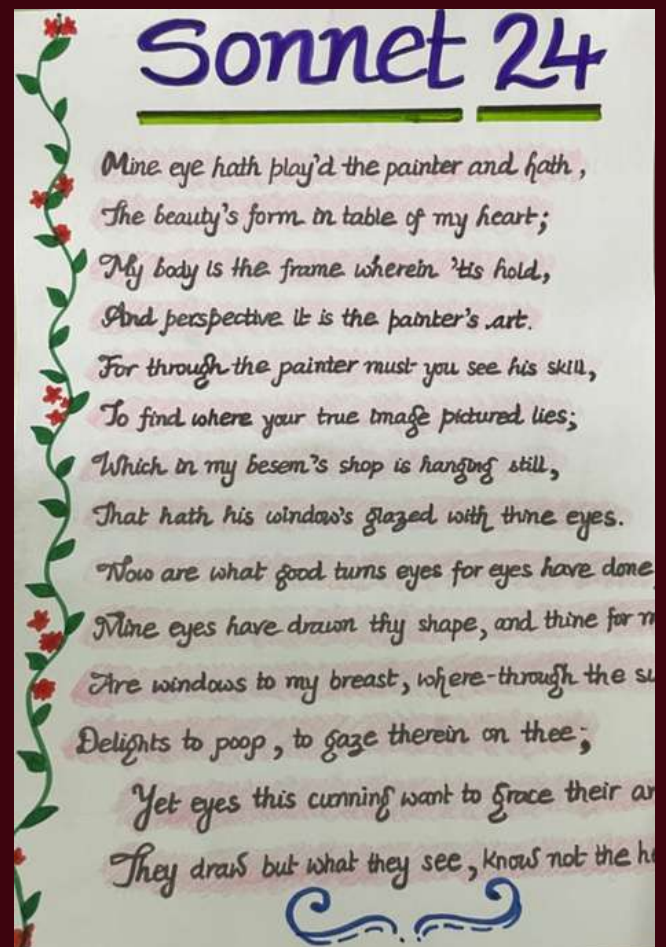 Sonnet 24
Mine eye hath play'd the painter and hath,
The beauty's form in table of my heart;
My body is the frame wherein 'tis hold,
And perspective it is the painter's art.
For through the painter must you see his skill,
To find where your true image pictured lies;
Which in my besem's shop is hanging still,
That hath his window's glazed with thine eyes.
Now are what good turns eyes for eyes have done
Mine eyes have drawn thy shape, and thine for m
Are windows to my breast, where-through the su
Delights to poop, to gaze therein on thee;
Yet eyes this cunning want to grace their ar
They draw but what they see, know not the he